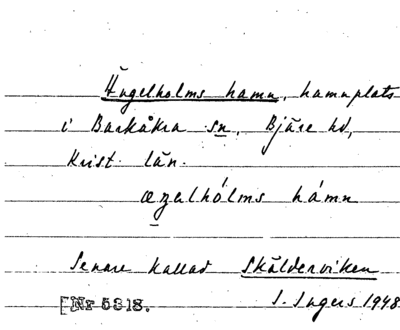 Ängelholms hamn, hamnplats
i Barkåkra sn, Bjäre hd,
Krist. län.
æŋelhólms hámn
Senare kallad Skälderviken
[Nr 5318. I. Ingers 1948